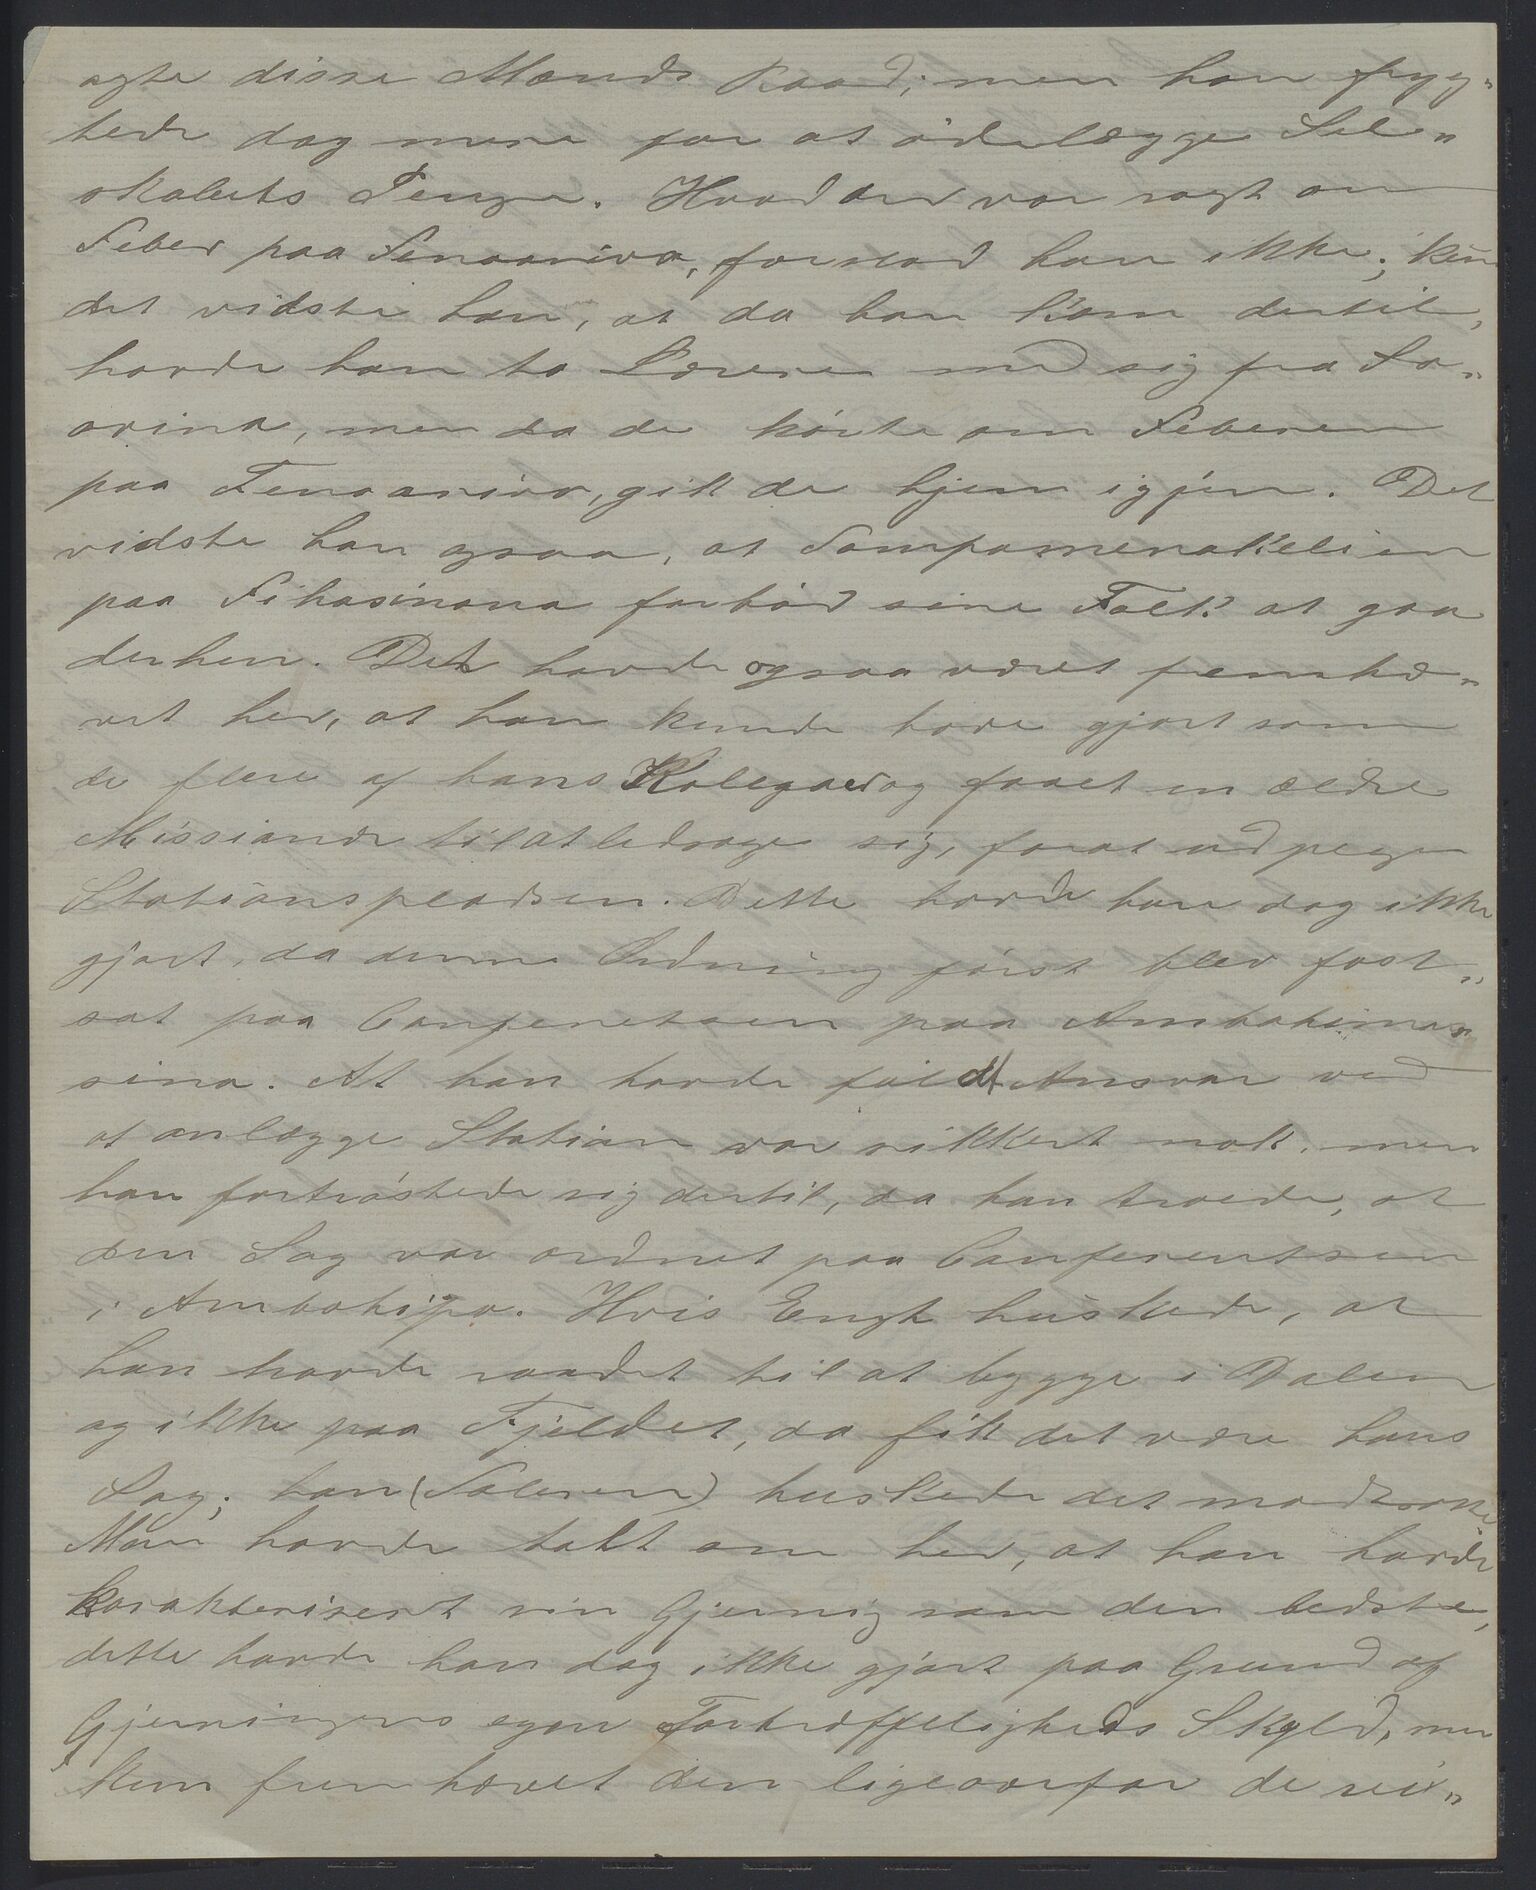 agte disse Mænds Raad; men han fryg„
tede dog mere for at ödelægge Sel„
skabets Penge. Hvad der var sagt om
Feber paa Fenoarivo, forstod han ikke; kun
det vidste han, at da han kom dertil,
havde han to Lærere med sig fra So„
avina, men da de hörte om Feberen
paa Fenoarivo, gik de hjem igjen. Det
vidste han ogsaa, at Tompomenakelien
paa Fihasinana forböd sine Folk at gaa
derhen. Det havde ogsaa været fremhæ„
vet her, at han kunde have gjort som
de flere af hans Kolegaer og faaet en ældre
Missionær til at ledsage sig, forat udpege
Stationspladsen. Dette havde han dog ikke
gjort, da denne Ordning först blev fast„
sat paa Conferentsen paa Ambohimas„
sina. At han havde fuldt Ansvar ved
at anlægge Station var sikkert nok, men
han fortröstede sig dertil, da han troede, at
den Sag var ordnet paa Conferentsen
i Ambohipo. Hvis Engh huskede, at
han havde raadet til at bygge i Dalen
og ikke paa Fjeldet, da fik det være hans
Sag; han (Taleren) huskede det modsatte
Man havde talt om her, at han havde
karakteriseret sin Gjerning som den bedste,
dette havde han dog ikke gjort paa Grund af
Gjerningens egen Fortræffeligheds Skyld, men
kun frem hævet den ligeoverfor de rei„